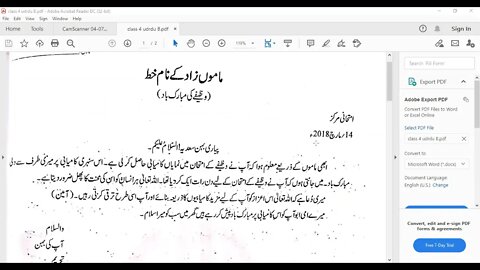 class 4 uordu B.pdf - Adobe Acrobat Reader DC (32-bit)
File Edit View Sign Window Help
Home Tools CamScanner 04-07... class 4 uordu B.pdf Sign In
1 / 2 119%
ماموں زاد کے نام خط
(وظیفے کی مبارک باد)
امتحانی مرکز
14 مارچ 2018ء
پیاری بہن سعدیہ السلام علیکم۔
ابھی ماموں کے ذریعے معلوم ہوا کہ آپ نے وظیفے کے امتحان میں نمایاں کامیابی حاصل کر لی ہے۔ اس سنہری کامیابی پر میری طرف سے دلی
مبارک باد۔ میں جانتی ہوں کہ آپ نے وظیفے کے امتحان کے لیے دن رات ایک کر دیا تھا۔ اللہ تعالیٰ ہر انسان کو اس کی محنت کا پھل ضرور دیتا ہے۔
میری دُعا ہے کہ اللہ تعالیٰ اس اعزاز کو آپ کے لیے مزید کامیابیوں کا ذریعہ بنائے اور آپ اسی طرح ترقی کرتی رہیں۔ (آمین)
میرے امی ابو آپ کو اس کامیابی پر مبارک باد پیش کر رہے ہیں گھر میں سب کو میرا سلام۔
والسلام
آپ کی بہن
Export PDF
Adobe Export PDF
Convert PDF Files to Word or Excel Online
Select PDF File
class 4 uordu B.pdf
Convert to
Microsoft Word (*.docx)
Document Language:
English (U.S.) Change
Convert, edit and e-sign PDF forms & agreements
Free 7-Day Trial